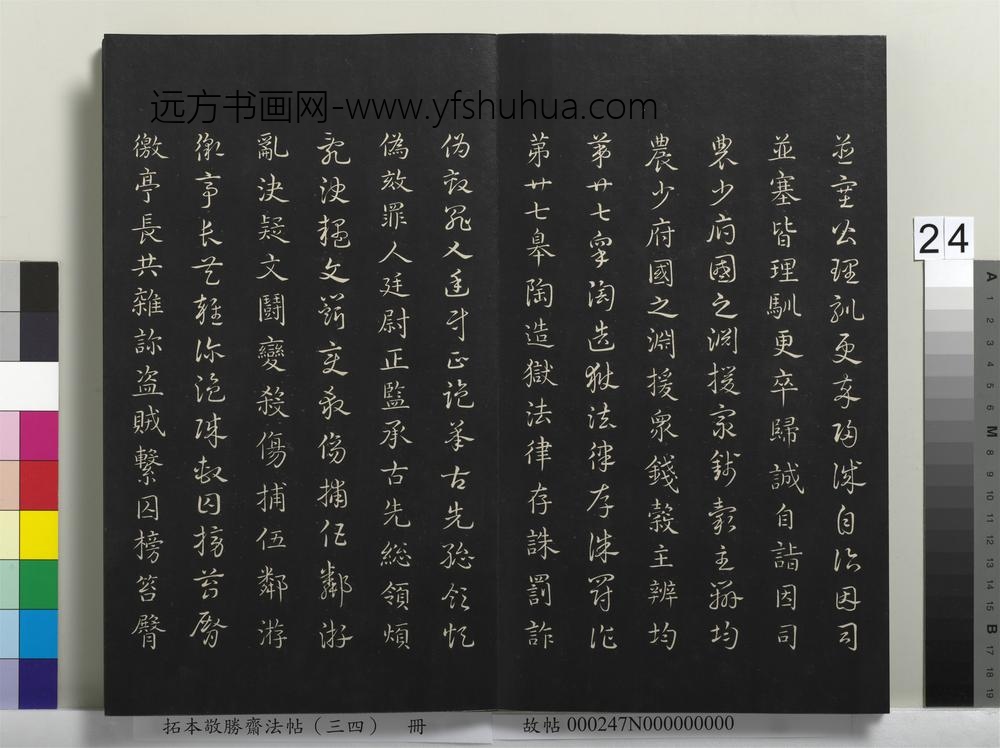 远方书画网-www.yfshuhua.com
並塞皆理馴更卒歸誠自詣因司
並塞皆理馴更卒歸誠自詣因司
農少府國之淵援眾錢穀主辨均
農少府國之淵援眾錢穀主辨均
第廿七皋陶造獄法律存誅罰詐
第廿七皋陶造獄法律存誅罰詐
偽效罪人廷尉正監承古先総領煩
偽效罪人廷尉正監承古先総領煩
亂決疑文鬪變殺傷捕伍鄰游
亂決疑文鬪變殺傷捕伍鄰游
徼亭長共雜診盜賊繫囚榜笞臀
徼亭長共雜診盜賊繫囚榜笞臀
24
A 1 2 3 4 5 6 M 8 9 10 11 12 13 14 15 B 17 18 19
拓本敬勝齋法帖（三四） 冊
故帖 000247N000000000